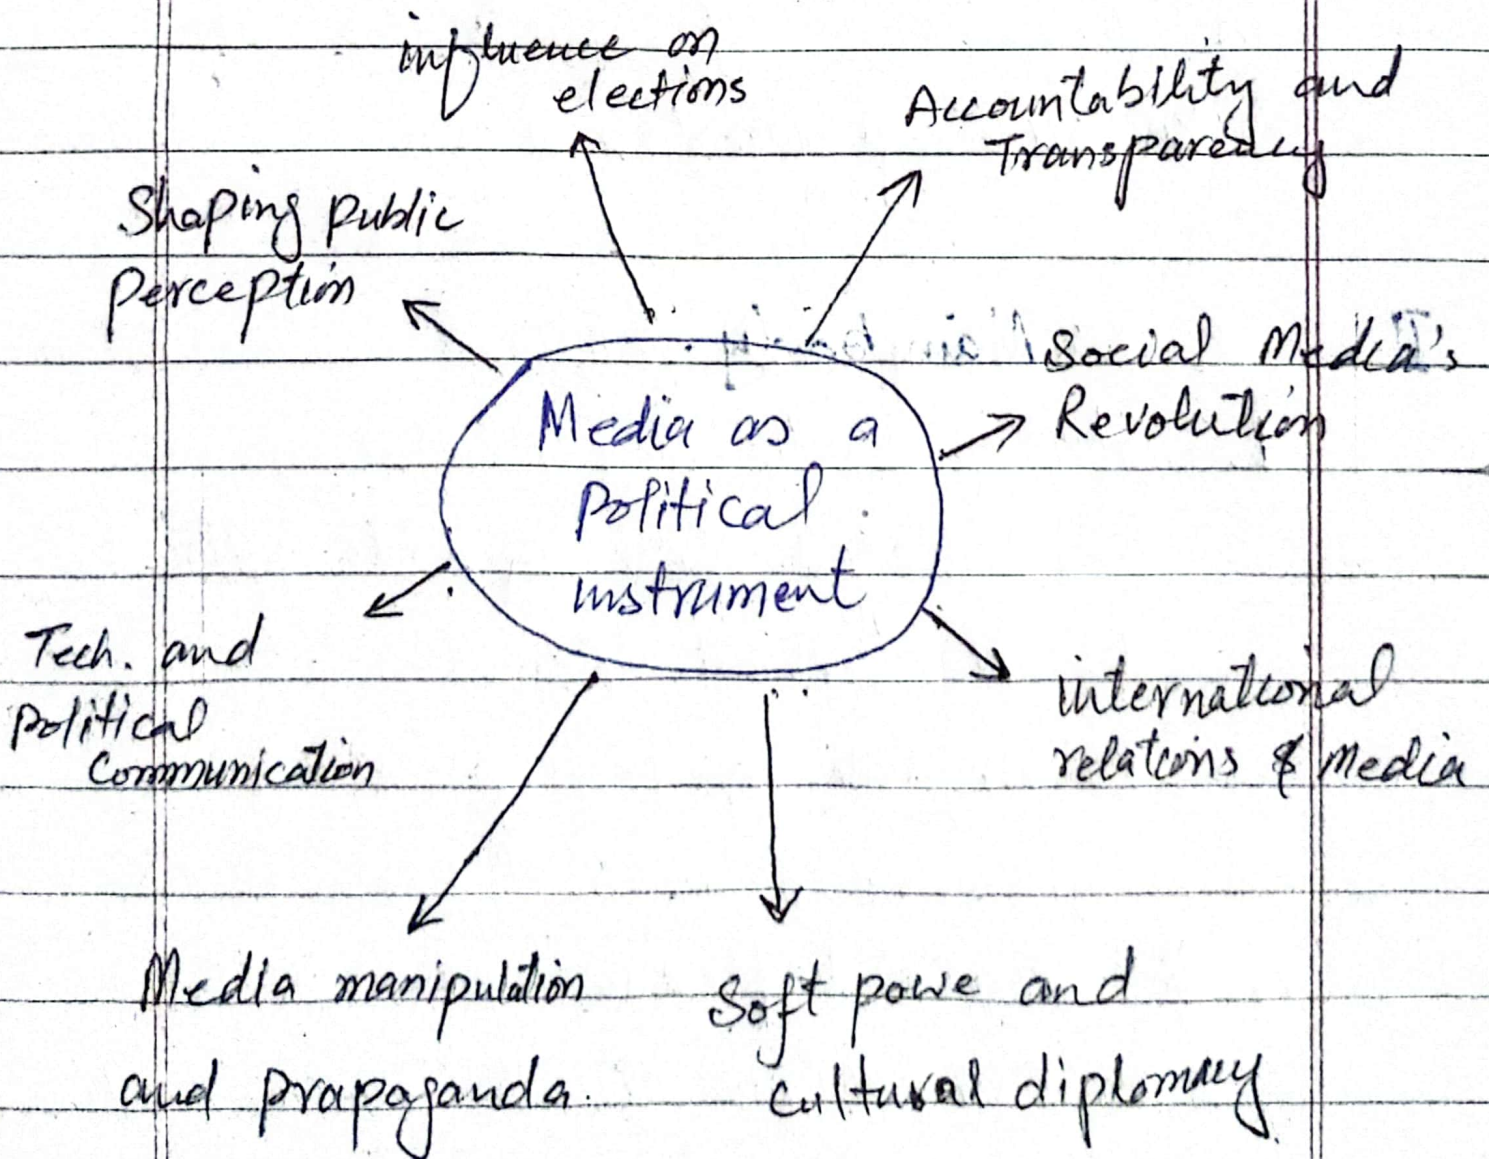 influence on
elections
Accountability and
Transparency
Shaping public
perception
Social Media's
Revolution
Media as a
political
instrument
Tech. and
political
Communication
international
relations & Media
Media manipulation
and prapaganda.
Soft powe and
cultural diplomacy.